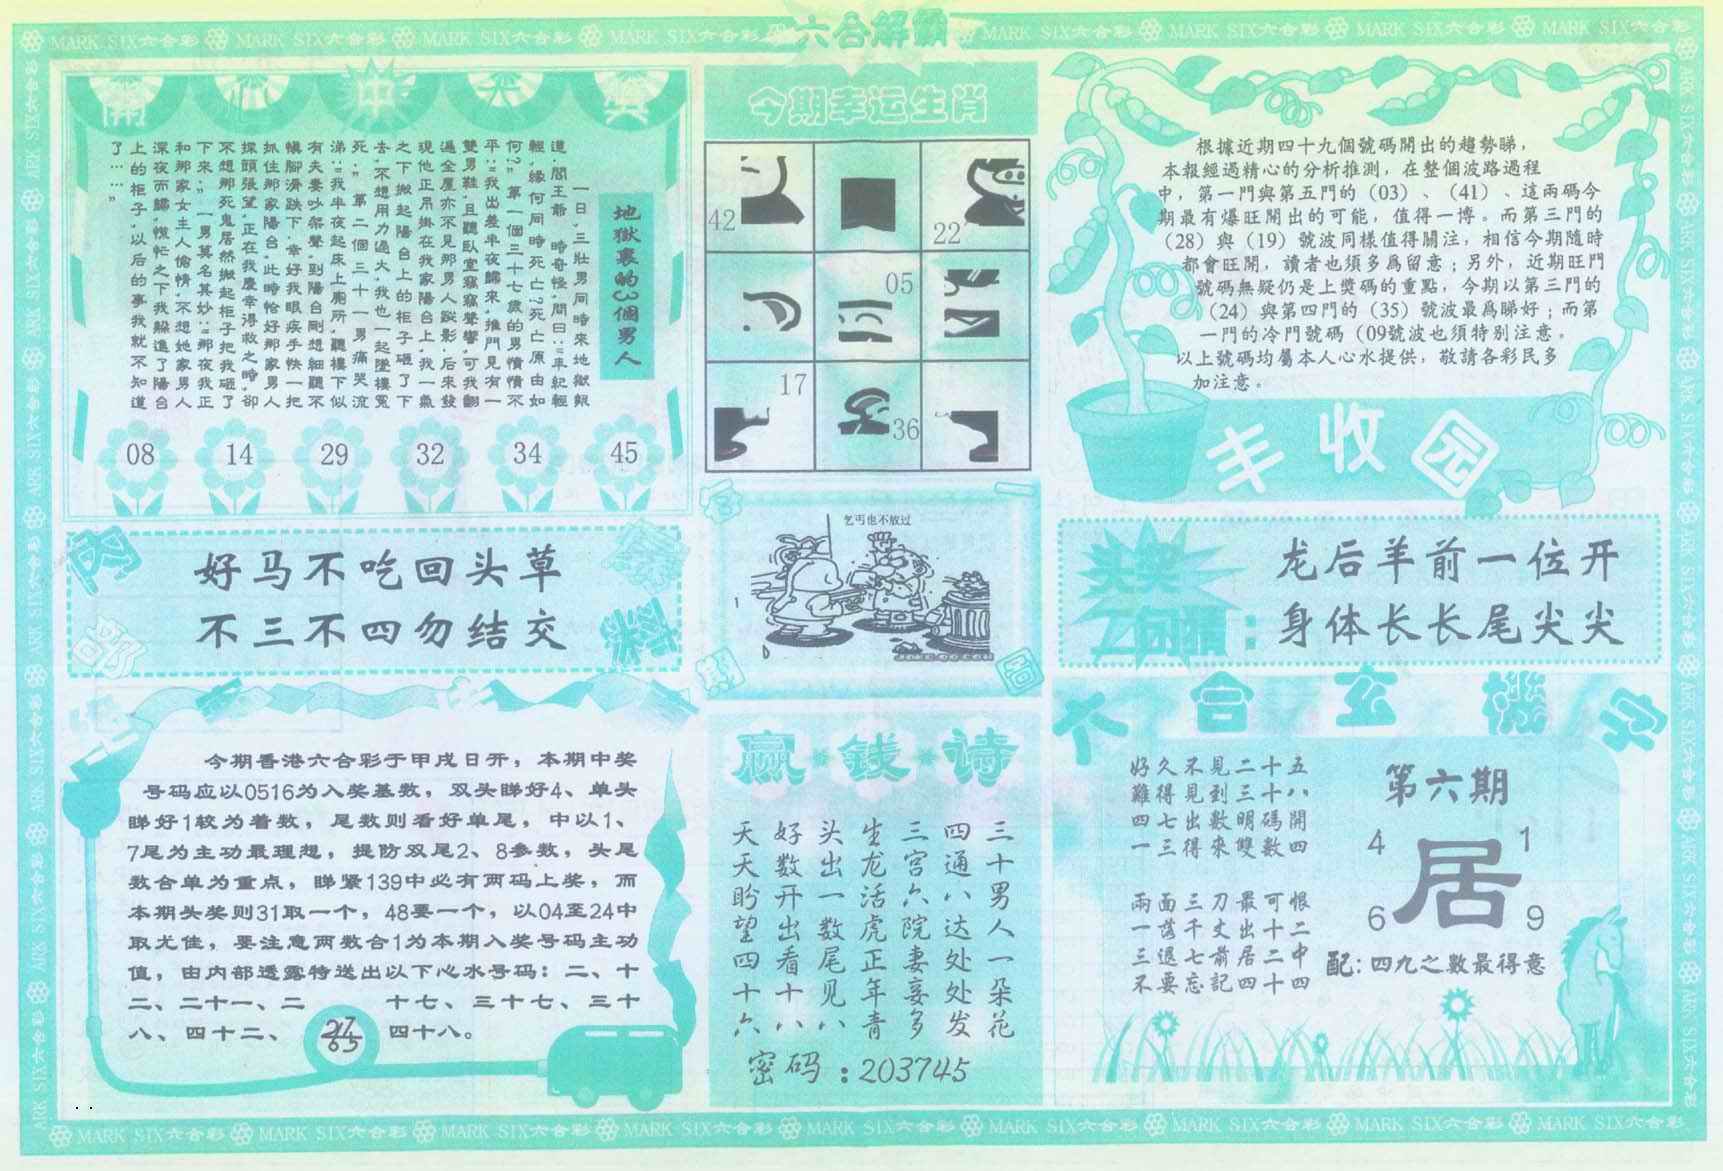 六合解霸
MARK SIX六合彩
開心中大獎
地獄裏的3個男人
一日,三壯男同時來地獄報
道.閻王爺 時奇怪,問曰:"年紀輕
輕,緣何同時死亡?死亡原由如
何?"第一個三十七歲的男憤憤不
平:"我出差半夜歸來,推門見有一
雙男鞋,且聽臥室竊竊聲響,可我翻
遍全屋亦不見那男人蹤影.后來發
現他正吊掛在我家陽台上,我一氣
之下搬起陽台上的柜子砸了下
去,不想用力過大,我也一起墜樓冤
死."第二個三十一男痛哭流
涕:"我半夜起床上廁所,聽樓下似
有夫妻吵架聲,到陽台剛想細聽不
慎腳滑跌下.幸好我眼疾手快一把
抓住那家陽台,此時恰好那家男人
探頭張望,正在我慶幸得救之時,卻
不想那死鬼居然搬起柜子把我砸了
下來."一男莫名其妙:"那夜我正
和那家女主人偷情,不想她家男人
深夜而歸,慌忙之下我躲進了陽台
上的柜子,以后的事我就不知道
了……"
08 14 29 32 34 45
今期幸运生肖
42
22
05
17
36
根據近期四十九個號碼開出的趨勢睇，
本報經過精心的分析推測，在整個波路過程
中，第一門與第五門的（03）、（41）、這兩碼今
期最有爆旺開出的可能，值得一博。而第三門的
（28）與（19）號波同樣值得關注，相信今期隨時
都會旺開，讀者也須多爲留意；另外，近期旺門
號碼無疑仍是上獎碼的重點，今期以第三門的
（24）與第四門的（35）號波最爲睇好；而第
一門的冷門號碼（09號波也須特別注意。
以上號碼均屬本人心水提供，敬請各彩民多
加注意。
丰收园
内部爆料
好马不吃回头草
不三不四勿结交
乞丐也不放过
头奖
二句猜：
龙后羊前一位开
身体长长尾尖尖
今期香港六合彩于甲戌日开，本期中奖
号码应以0516为入奖基数，双头睇好4、单头
睇好1较为着数，尾数则看好单尾，中以1、
7尾为主功最理想，提防双尾2、8参数，头尾
数合单为重点，睇紧139中必有两码上奖，而
本期头奖则31取一个，48要一个，以04至24中
取尤佳，要注意两数合1为本期入奖号码主功
值，由内部透露特送出以下心水号码：二、十
二、二十一、二 十七、三十七、三十
八、四十二、 四十八。
27
65
赢钱诗
三十男人一朵花
四通八达处处发
三宫六院妻妾多
生龙活虎正年青
头出一数尾见八
好数开出看十八
天天盼望四十六
密码：203745
六合玄機字
好久不見二十五
難得見到三十八
四七出數明碼開
一三得來雙數四
兩面三刀最可恨
一落千丈出十二
三退七前居二中
不要忘記四十四
第六期
4 1
居
6 9
配：四九之數最得意
MARK SIX六合彩